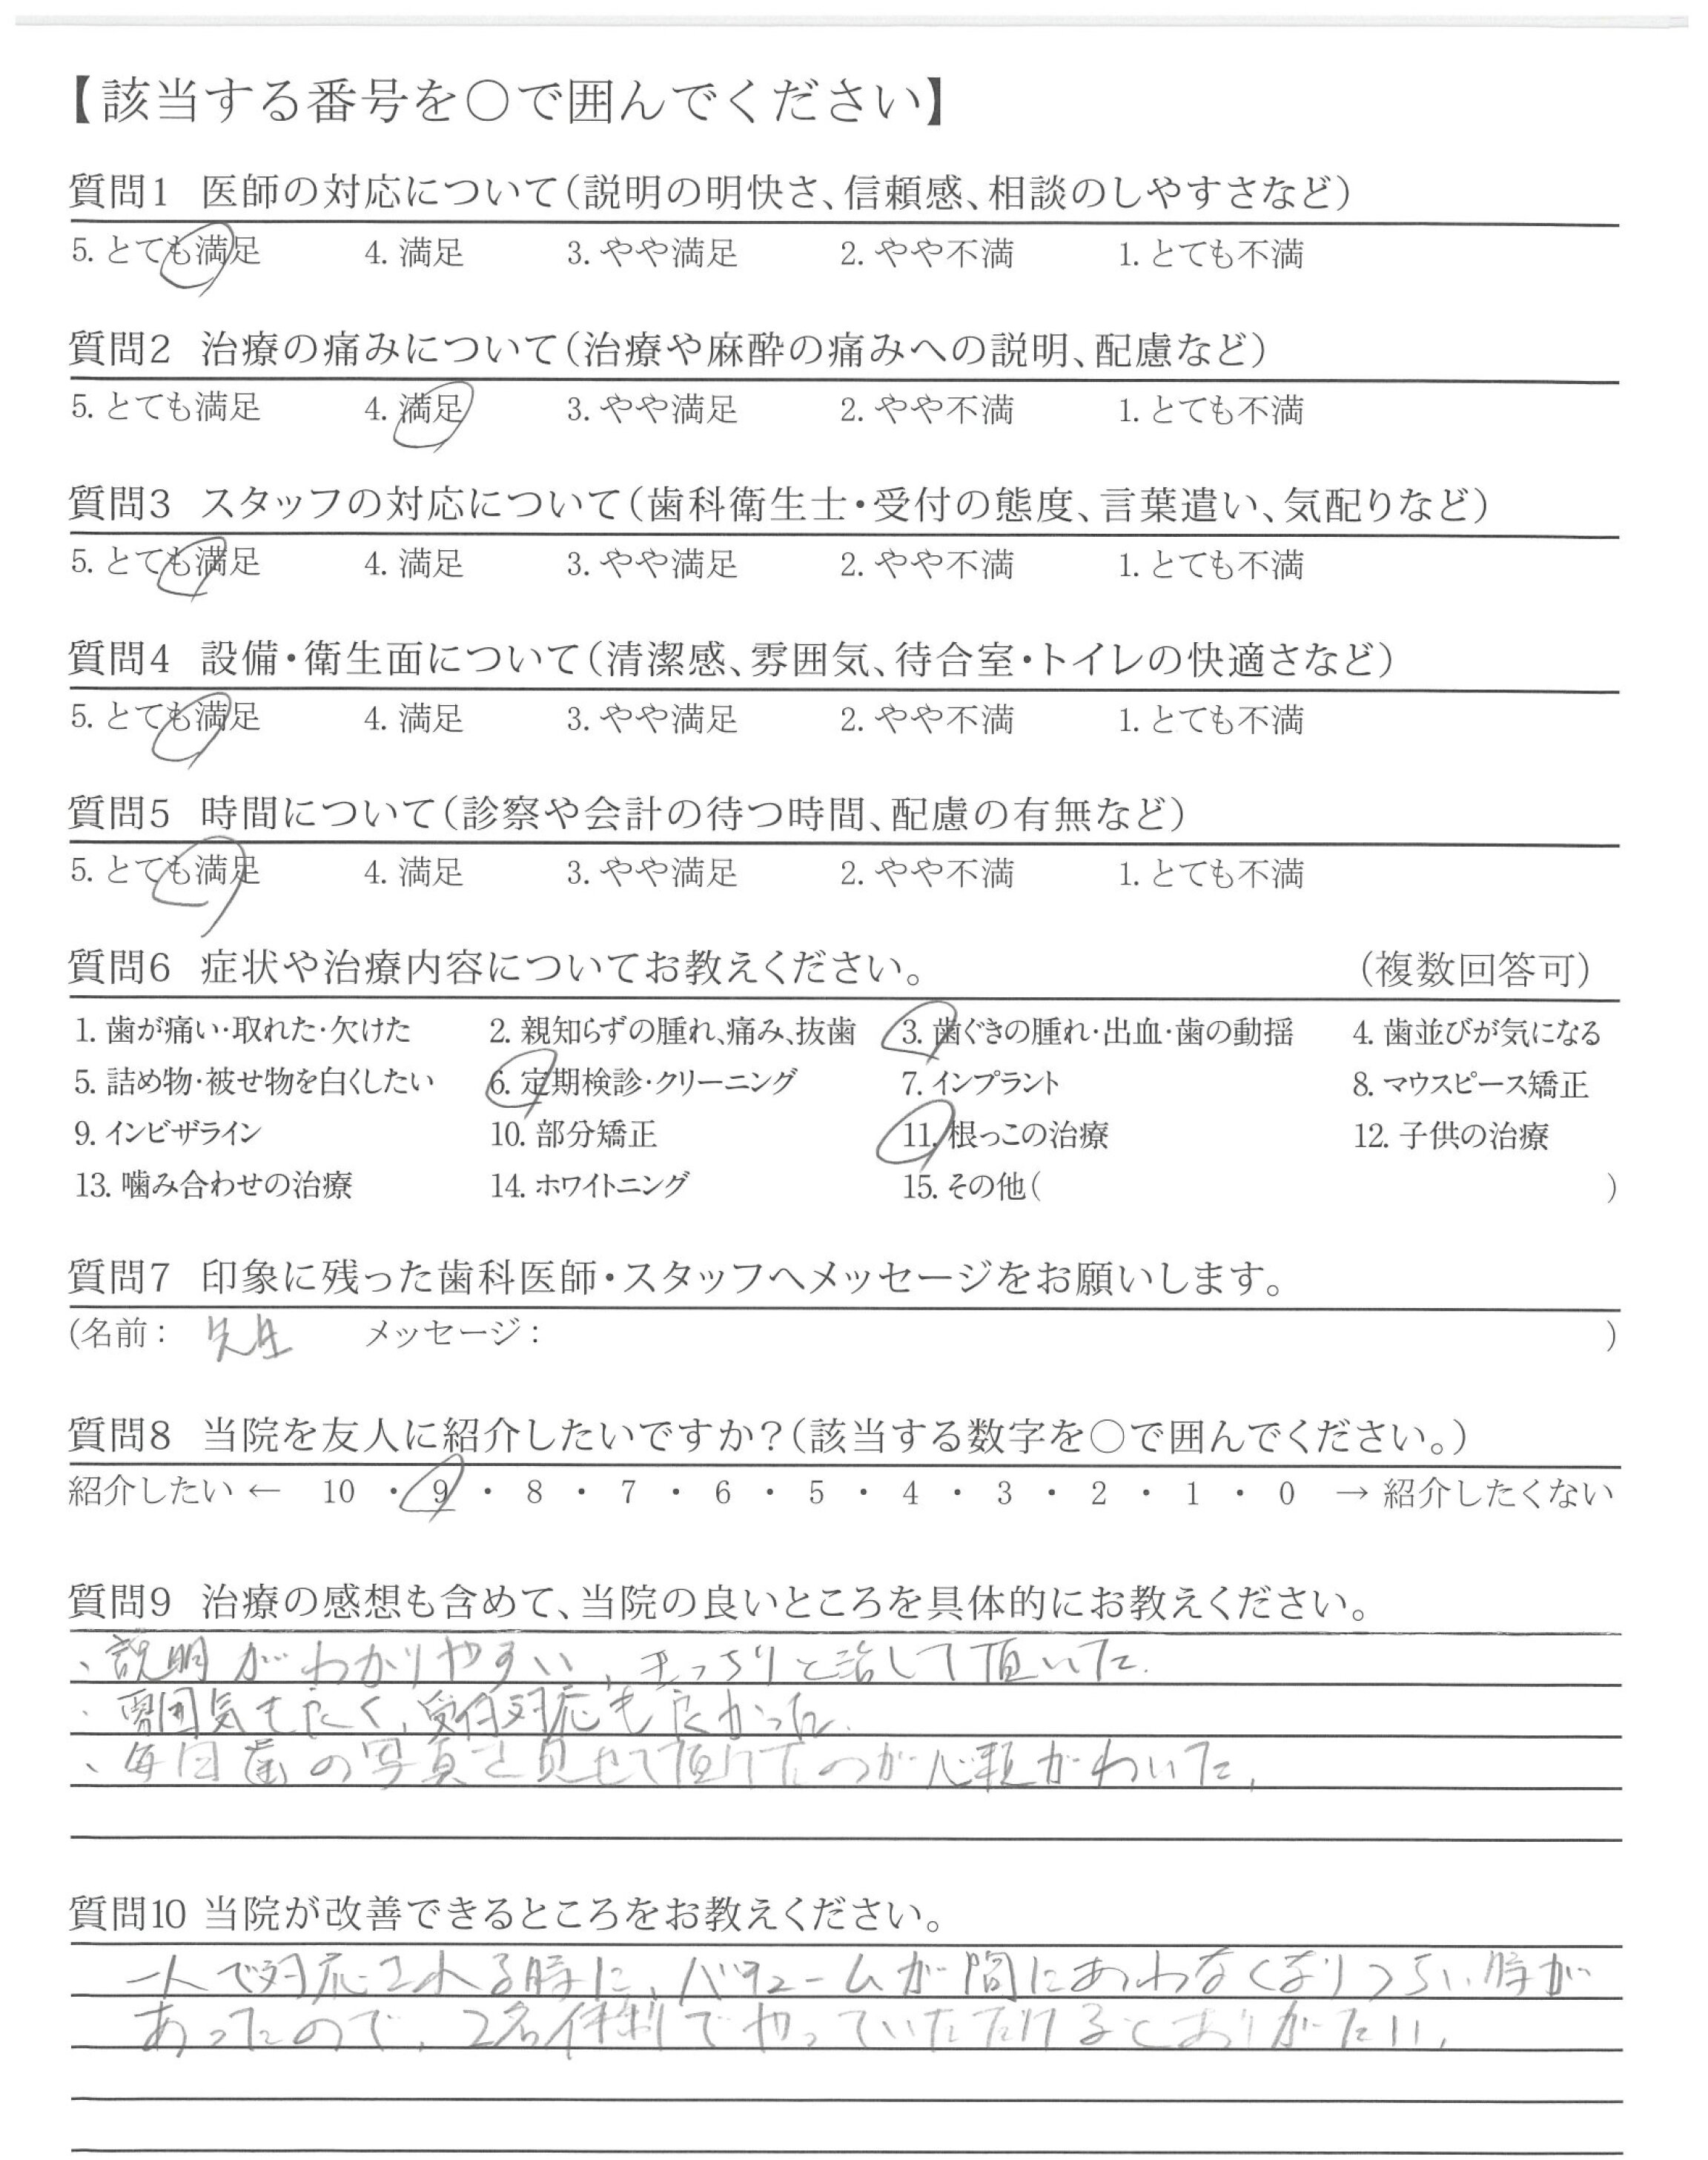 【該当する番号を○で囲んでください】
質問1 医師の対応について(説明の明快さ、信頼感、相談のしやすさなど)
5. とても満足 4. 満足 3. やや満足 2. やや不満 1. とても不満
質問2 治療の痛みについて(治療や麻酔の痛みへの説明、配慮など)
5. とても満足 4. 満足 3. やや満足 2. やや不満 1. とても不満
質問3 スタッフの対応について(歯科衛生士・受付の態度、言葉遣い、気配りなど)
5. とても満足 4. 満足 3. やや満足 2. やや不満 1. とても不満
質問4 設備・衛生面について(清潔感、雰囲気、待合室・トイレの快適さなど)
5. とても満足 4. 満足 3. やや満足 2. やや不満 1. とても不満
質問5 時間について(診察や会計の待つ時間、配慮の有無など)
5. とても満足 4. 満足 3. やや満足 2. やや不満 1. とても不満
質問6 症状や治療内容についてお教えください。 (複数回答可)
1. 歯が痛い・取れた・欠けた 2. 親知らずの腫れ、痛み、抜歯 3. 歯ぐきの腫れ・出血・歯の動揺 4. 歯並びが気になる
5. 詰め物・被せ物を白くしたい 6. 定期検診・クリーニング 7. インプラント 8. マウスピース矯正
9. インビザライン 10. 部分矯正 11. 根っこの治療 12. 子供の治療
13. 噛み合わせの治療 14. ホワイトニング 15. その他( )
質問7 印象に残った歯科医師・スタッフへメッセージをお願いします。
(名前: 先生 メッセージ: )
質問8 当院を友人に紹介したいですか?(該当する数字を○で囲んでください。)
紹介したい ← 10 ・ 9 ・ 8 ・ 7 ・ 6 ・ 5 ・ 4 ・ 3 ・ 2 ・ 1 ・ 0 → 紹介したくない
質問9 治療の感想も含めて、当院の良いところを具体的にお教えください。
、説明がわかりやすい、きっちりと治して頂いた.
・雰囲気も良く、受付対応も良かった.
、毎回歯の写真を見せて頂けたのが信頼がわいた、
質問10 当院が改善できるところをお教えください。
一人で対応される時に、バキュームが間にあわなくなりつらい時が
あったので、2名体制でやっていただけるとありがたい、